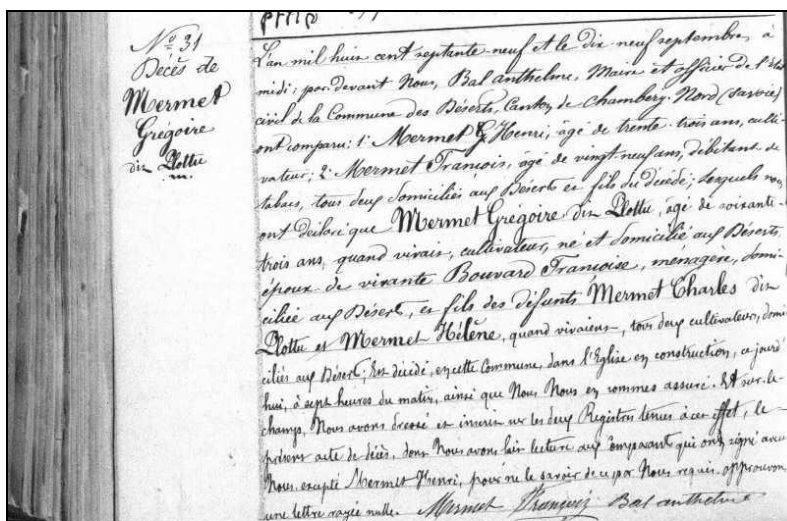 Nº 31
Décès de
Mermet
Grégoire
dit Plottu
L'an mil huit cent septante neuf et le dix neuf septembre, à
midi; par devant Nous, Bal anthelme, Maire et officier de l'Etat
civil de la Commune des Déserts, Canton de Chambéry-Nord (Savoie)
ont comparu; 1° Mermet Henri, âgé de trente-trois ans, culti-
vateur; 2° Mermet François, âgé de vingt neuf ans, débitant de
tabac, tous deux domiciliés aux Déserts et fils du décédé; lesquels nous
ont déclaré que Mermet Grégoire dit Plottu, âgé de soixante-
trois ans, quand vivait, cultivateur, né et domicilié aux Déserts,
époux de vivante Bouvard Françoise, menagère, domi-
ciliée aux Déserts, et fils des défunts Mermet Charles dit
Plottu et Mermet Hélène, quand vivaient, tous deux cultivateurs, domi-
ciliés aux Désert, Est décédé, en cette Commune, dans l'Eglise en construction, ce jourd'
hui, à sept heures du matin, ainsi que Nous Nous en sommes assuré. Et sur-le-
champs, Nous avons dressé et inscrit sur les deux Registres tenus à cet effet, le
présent acte de décès, dont Nous avons fait lecture aux Comparant qui ont signé avec
Nous, excepté Mermet Henri, pour ne le savoir de ce par Nous requis. approuvons
une lettre rayée nulle. Mermet François Bal anthelme